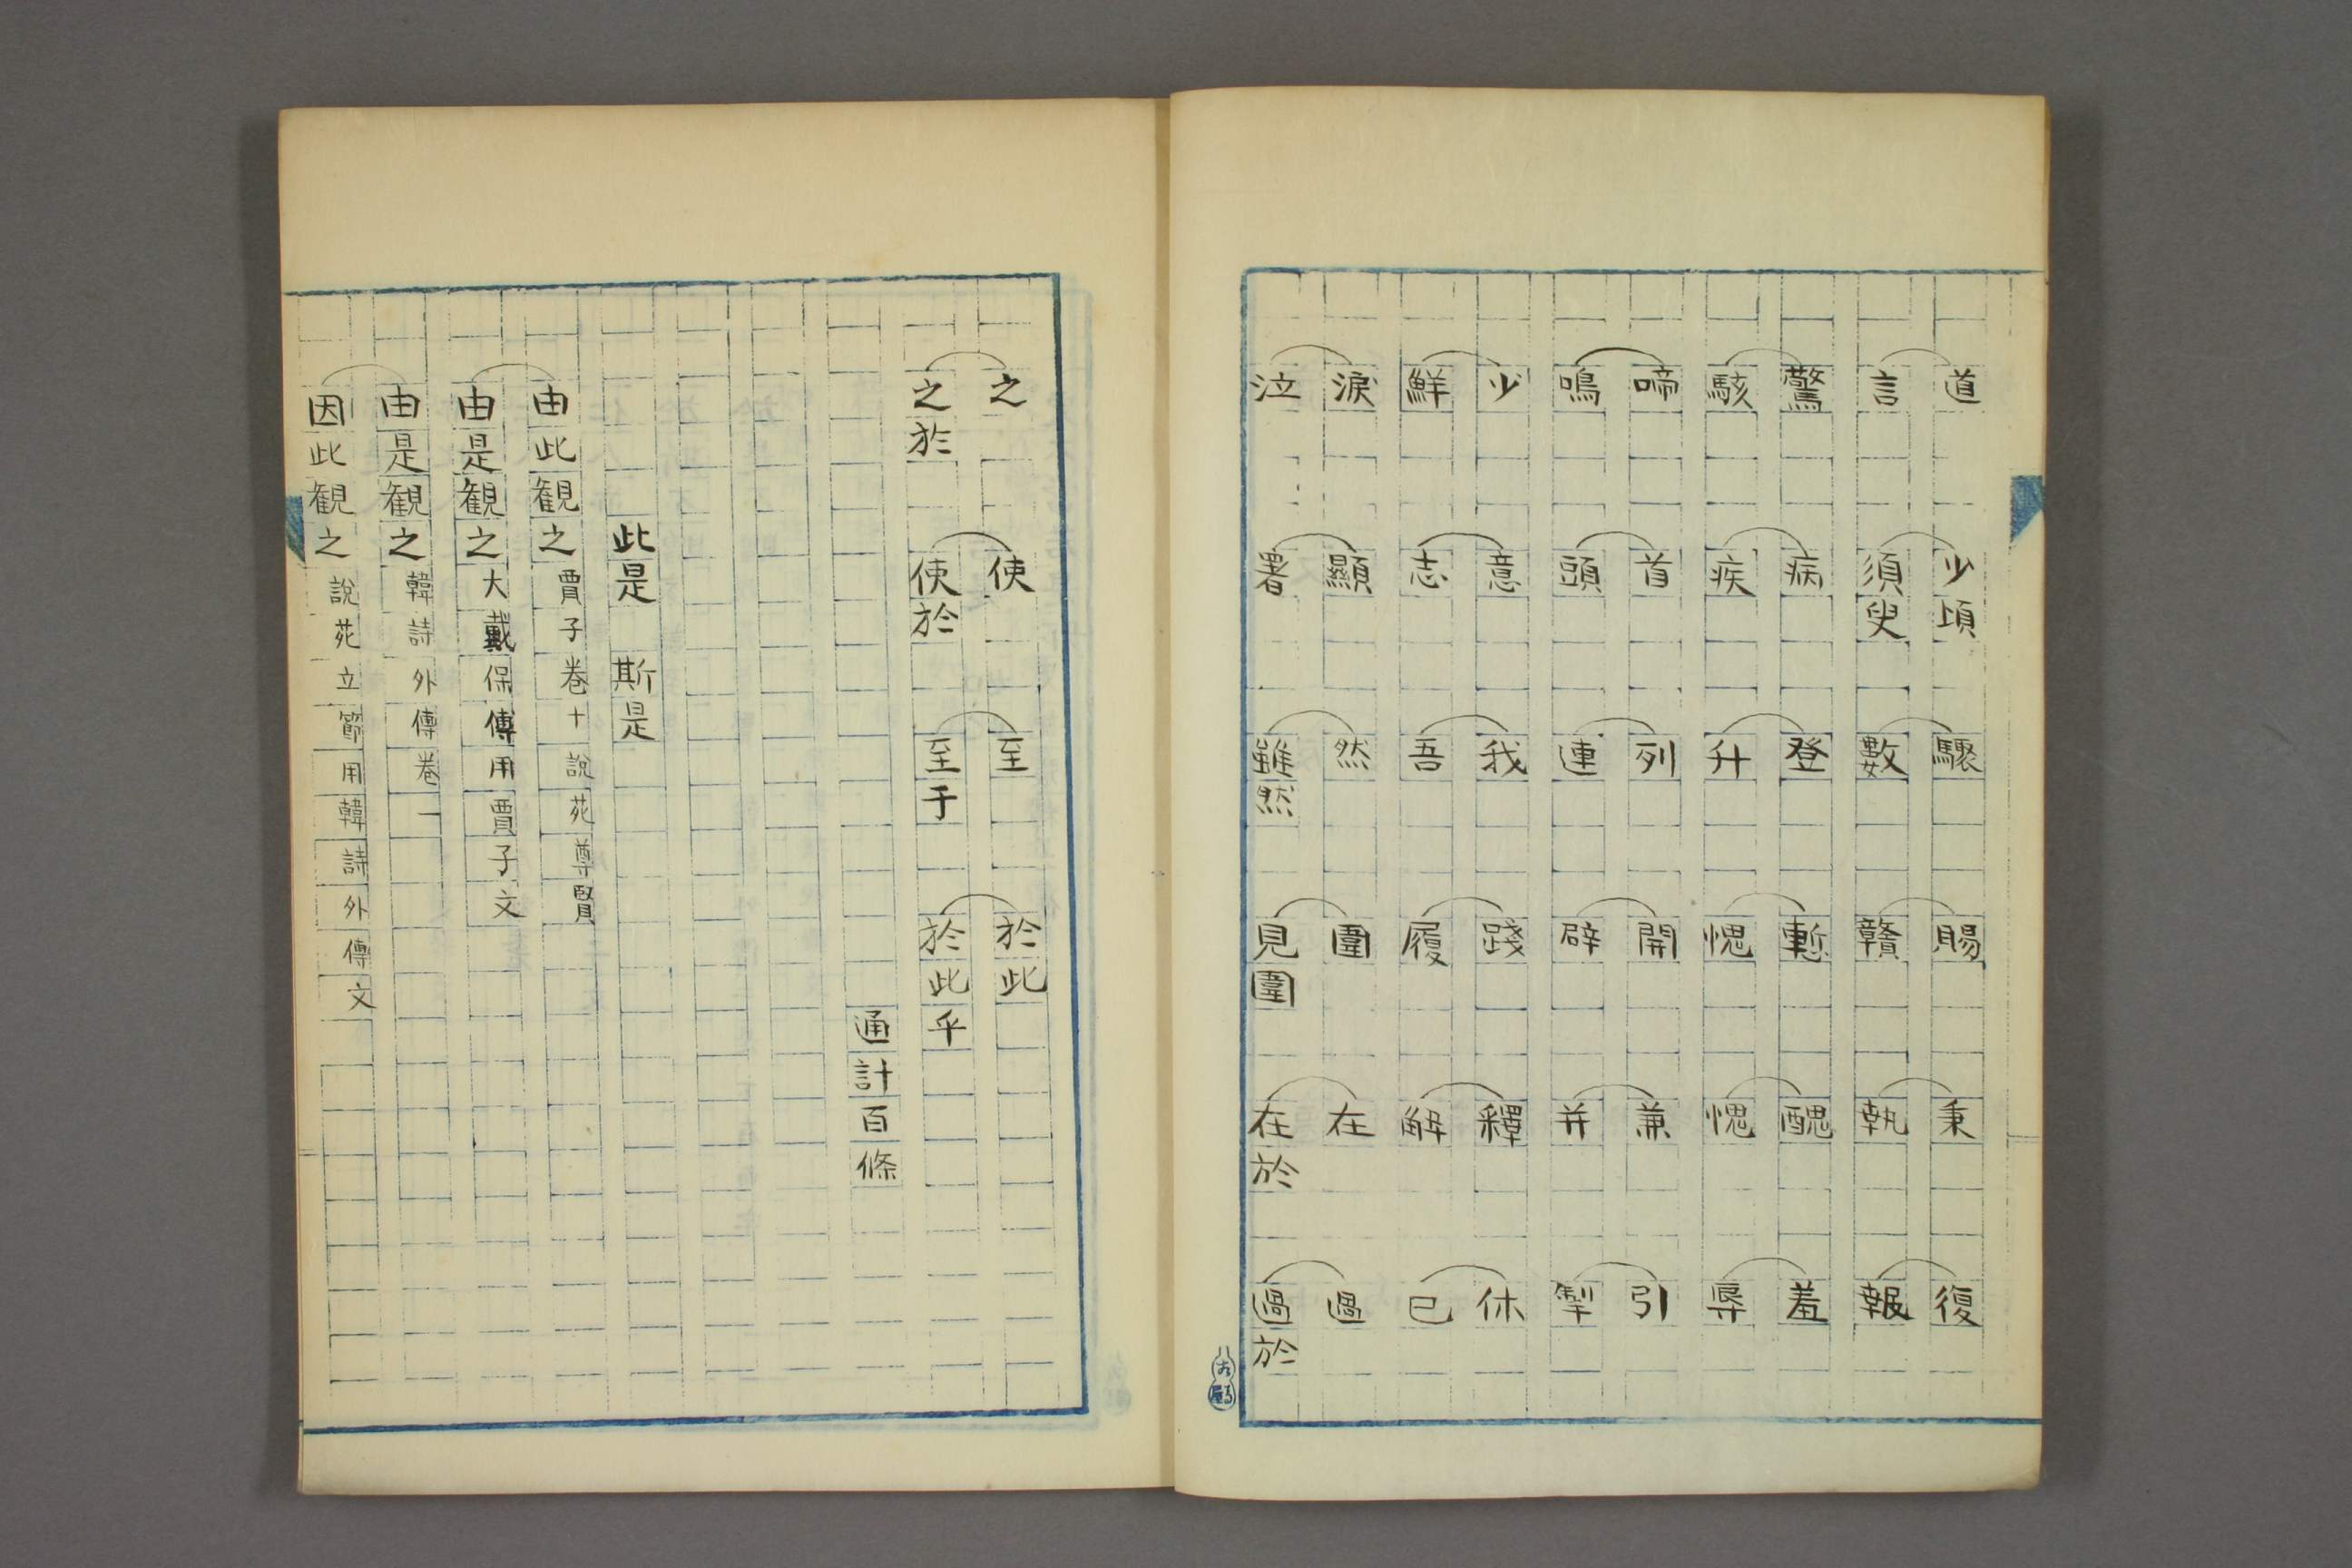 道 少頃 驟 賜 秉 復
言 須臾 數 贛 執 報
驚 病 登 慙 醜 羞
駭 疾 升 愧 愧 辱
啼 首 列 開 兼 引
鳴 頭 連 辟 并 掣
少 意 我 踐 釋 休
鮮 志 吾 履 解 已
淚 顯 然 圍 在 過
泣 署 雖然 見圍 在於 過於
之 使 至 於此
之於 使於 至于 於此乎
通計百條
此是 斯是
由此観之 賈子卷十 說苑尊賢
由是観之 大戴保傅用賈子文
由是観之 韓詩外傳卷一
因此観之 說苑立節用韓詩外傳文